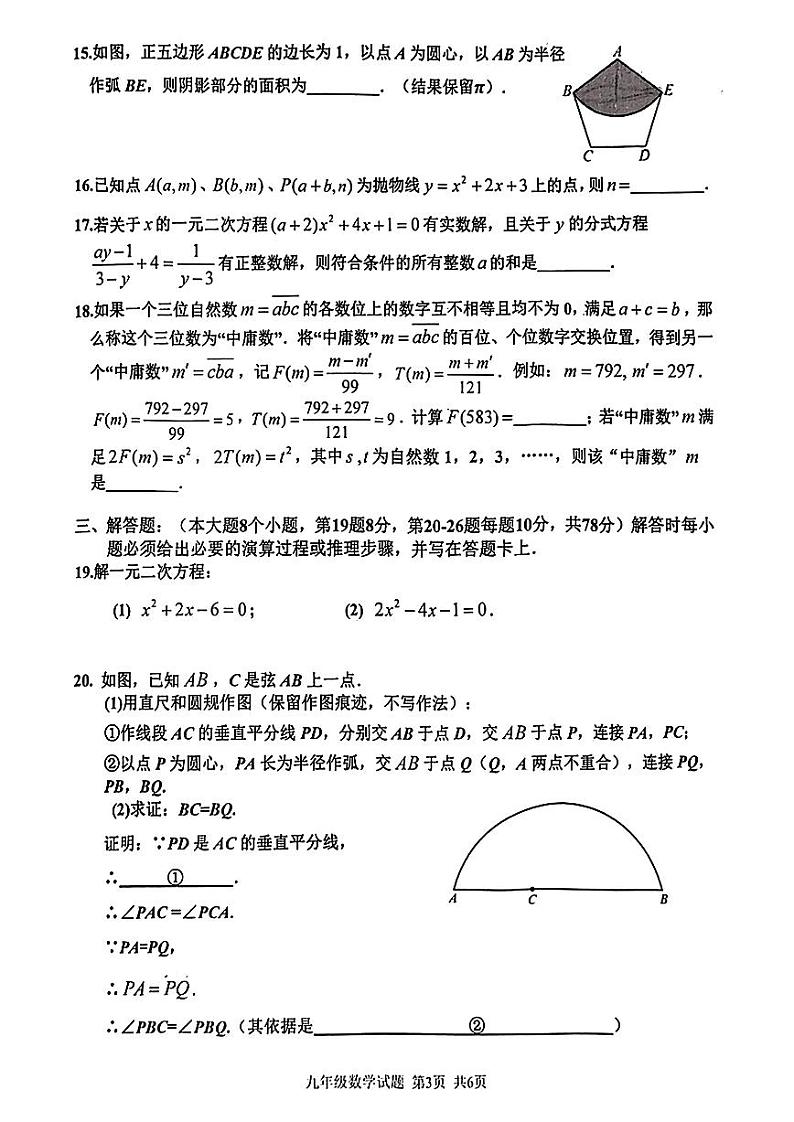 15.如图，正五边形 ABCDE 的边长为 1，以点 A 为圆心，以 AB 为半径
作弧 BE，则阴影部分的面积为________．（结果保留π）.
A
B
E
C
D
16.已知点 A(a,m)、B(b,m)、P(a+b,n) 为抛物线 y = x² +2x+3 上的点,则 n=________.
17.若关于 x 的一元二次方程 (a+2)x² +4x+1=0 有实数解，且关于 y 的分式方程
(ay-1)/(3-y) +4 = 1/(y-3) 有正整数解，则符合条件的所有整数 a 的和是________.
18.如果一个三位自然数 m = \overline{abc} 的各数位上的数字互不相等且均不为 0, 满足 a+c=b，那
么称这个三位数为“中庸数”．将“中庸数” m = \overline{abc} 的百位、个位数字交换位置，得到另一
个“中庸数” m′ = \overline{cba}，记 F(m) = (m-m′)/99，T(m) = (m+m′)/121．例如：m = 792, m′ = 297．
F(m) = (792-297)/99 = 5，T(m) = (792+297)/121 = 9．计算 F(583) =________；若“中庸数” m 满
足 2F(m) = s²，2T(m) = t²，其中 s ,t 为自然数 1，2，3，……，则该“中庸数” m
是________.
三、解答题：（本大题8个小题，第19题8分，第20-26题每题10分，共78分）解答时每小
题必须给出必要的演算过程或推理步骤，并写在答题卡上．
19.解一元二次方程：
(1) x² +2x-6=0; (2) 2x² -4x-1=0.
20. 如图，已知 AB，C 是弦 AB 上一点．
(1)用直尺和圆规作图（保留作图痕迹，不写作法）：
①作线段 AC 的垂直平分线 PD，分别交 AB 于点 D，交 AB 于点 P，连接 PA，PC;
②以点 P 为圆心，PA 长为半径作弧，交 AB 于点 Q（Q，A 两点不重合），连接 PQ，
PB，BQ.
(2)求证：BC=BQ.
证明：∵PD 是 AC 的垂直平分线，
∴____①____.
∴∠PAC=∠PCA.
∵PA=PQ，
∴ PA = PQ.
∴∠PBC=∠PBQ.（其依据是________②________）
A
C
B
九年级数学试题 第3页 共6页